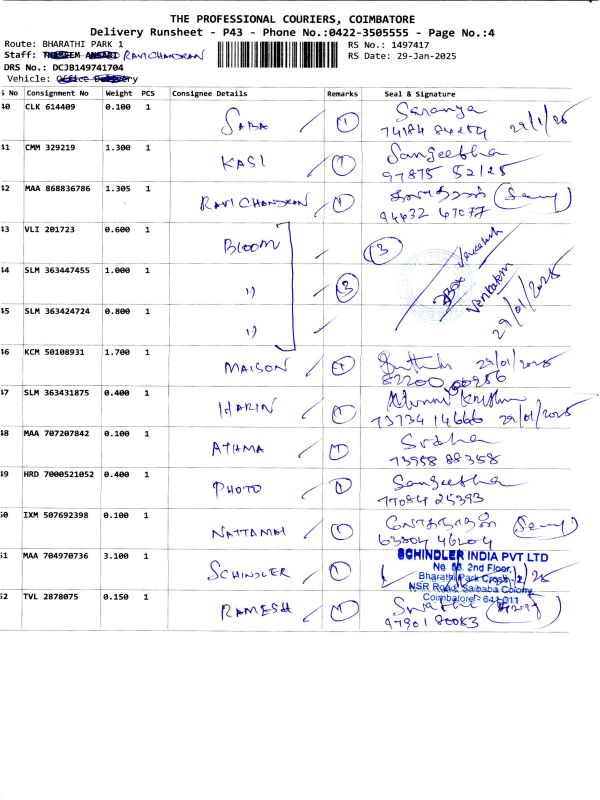 THE PROFESSIONAL COURIERS, COIMBATORE
Delivery Runsheet - P43 - Phone No.:0422-3505555 - Page No.:4
Route: BHARATHI PARK 1 RS No.: 1497417
Staff: RAVICHANDRAN RS Date: 29-Jan-2025
DRS No.: DCJB149741704
Vehicle:
S No Consignment No Weight PCS Consignee Details Remarks Seal & Signature
40 CLK 614409 0.100 1 SABA 1 Saranya
29/1/25
41 CMM 329219 1.300 1 KASI 1 Sangeetha
97875 52125
42 MAA 868836786 1.305 1 RAVICHANDRAN 1
94432 47077
43 VLI 201723 0.600 1 BLOOM 3
44 SLM 363447455 1.000 1 ") 3
Venkatesh
45 SLM 363424724 0.800 1 ")
29/01/2025
46 KCM 50108931 1.700 1 MAISON 1 29/01/2025
47 SLM 363431875 0.400 1 HARIN 1
73734 14666 29/01/2025
48 MAA 707207842 0.100 1 ATHMA 1 Sudha
73958 88358
49 HRD 7000521052 0.400 1 PHOTO 1 Sangeetha
77084 25393
50 IXM 507692398 0.100 1 NATTAMAI 1
63804 46204
51 MAA 704970736 3.100 1 SCHINDLER 1 SCHINDLER INDIA PVT LTD
No 88. 2nd Floor,
Bharathi Park Cross - 2
NSR Road, Saibaba Colony
Coimbatore - 641 011
52 TVL 2878075 0.150 1 RAMESH 1 Swathi
97901 80083